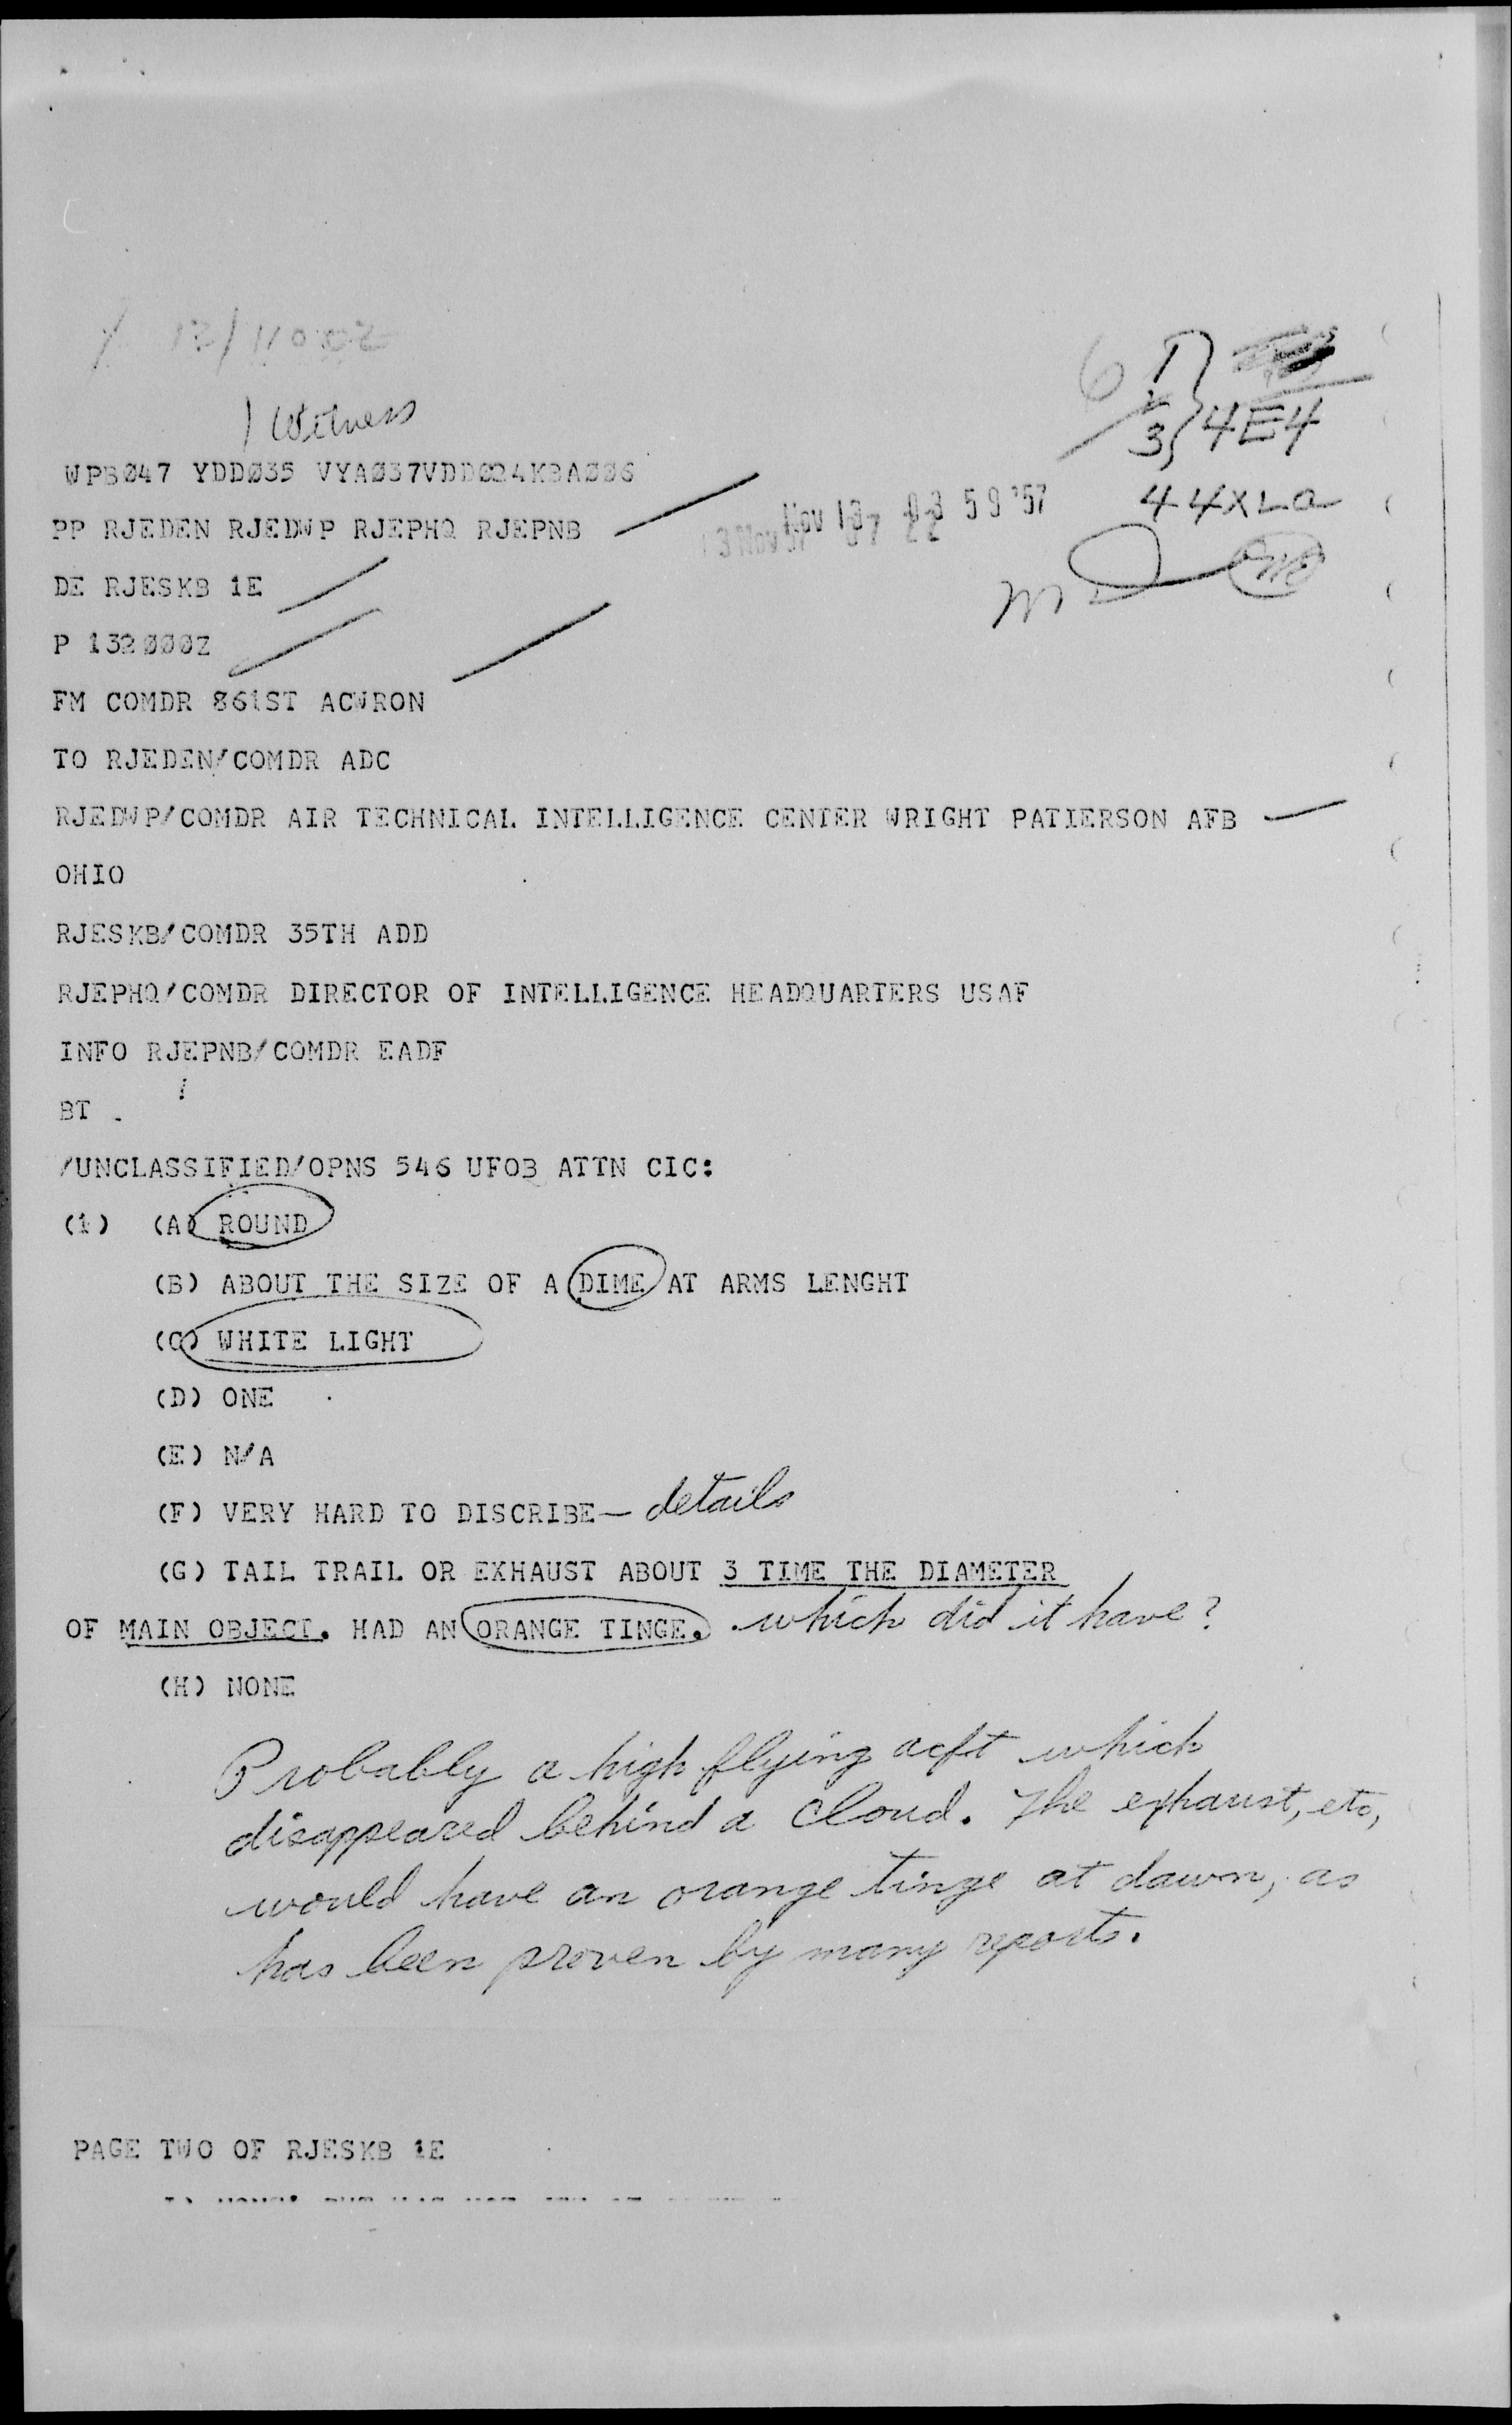 1 Witness
4E4
WPB047 YDD035 VYA037VDD024KBA006
44XLA
PP RJEDEN RJEDWP RJEPHQ RJEPNB
Nov 13 59 '57
DE RJESKB 1E
P 132000Z
FM COMDR 861ST ACWRON
TO RJEDEN/COMDR ADC
RJEDWP/COMDR AIR TECHNICAL INTELLIGENCE CENTER WRIGHT PATIERSON AFB
OHIO
RJESKB/COMDR 35TH ADD
RJEPHQ/COMDR DIRECTOR OF INTELLIGENCE HEADQUARTERS USAF
INFO RJEPNB/COMDR EADF
BT
/UNCLASSIFIED/OPNS 546 UFOB ATTN CIC:
(1) (A) ROUND
(B) ABOUT THE SIZE OF A DIME AT ARMS LENGHT
(C) WHITE LIGHT
(D) ONE
(E) N/A
(F) VERY HARD TO DISCRIBE — details
(G) TAIL TRAIL OR EXHAUST ABOUT 3 TIME THE DIAMETER
OF MAIN OBJECT. HAD AN ORANGE TINGE. which did it have?
(H) NONE
Probably a high flying acft which
disappeared behind a cloud. The exhaust, etc,
would have an orange tinge at dawn, as
has been proven by many reports.
PAGE TWO OF RJESKB 1E